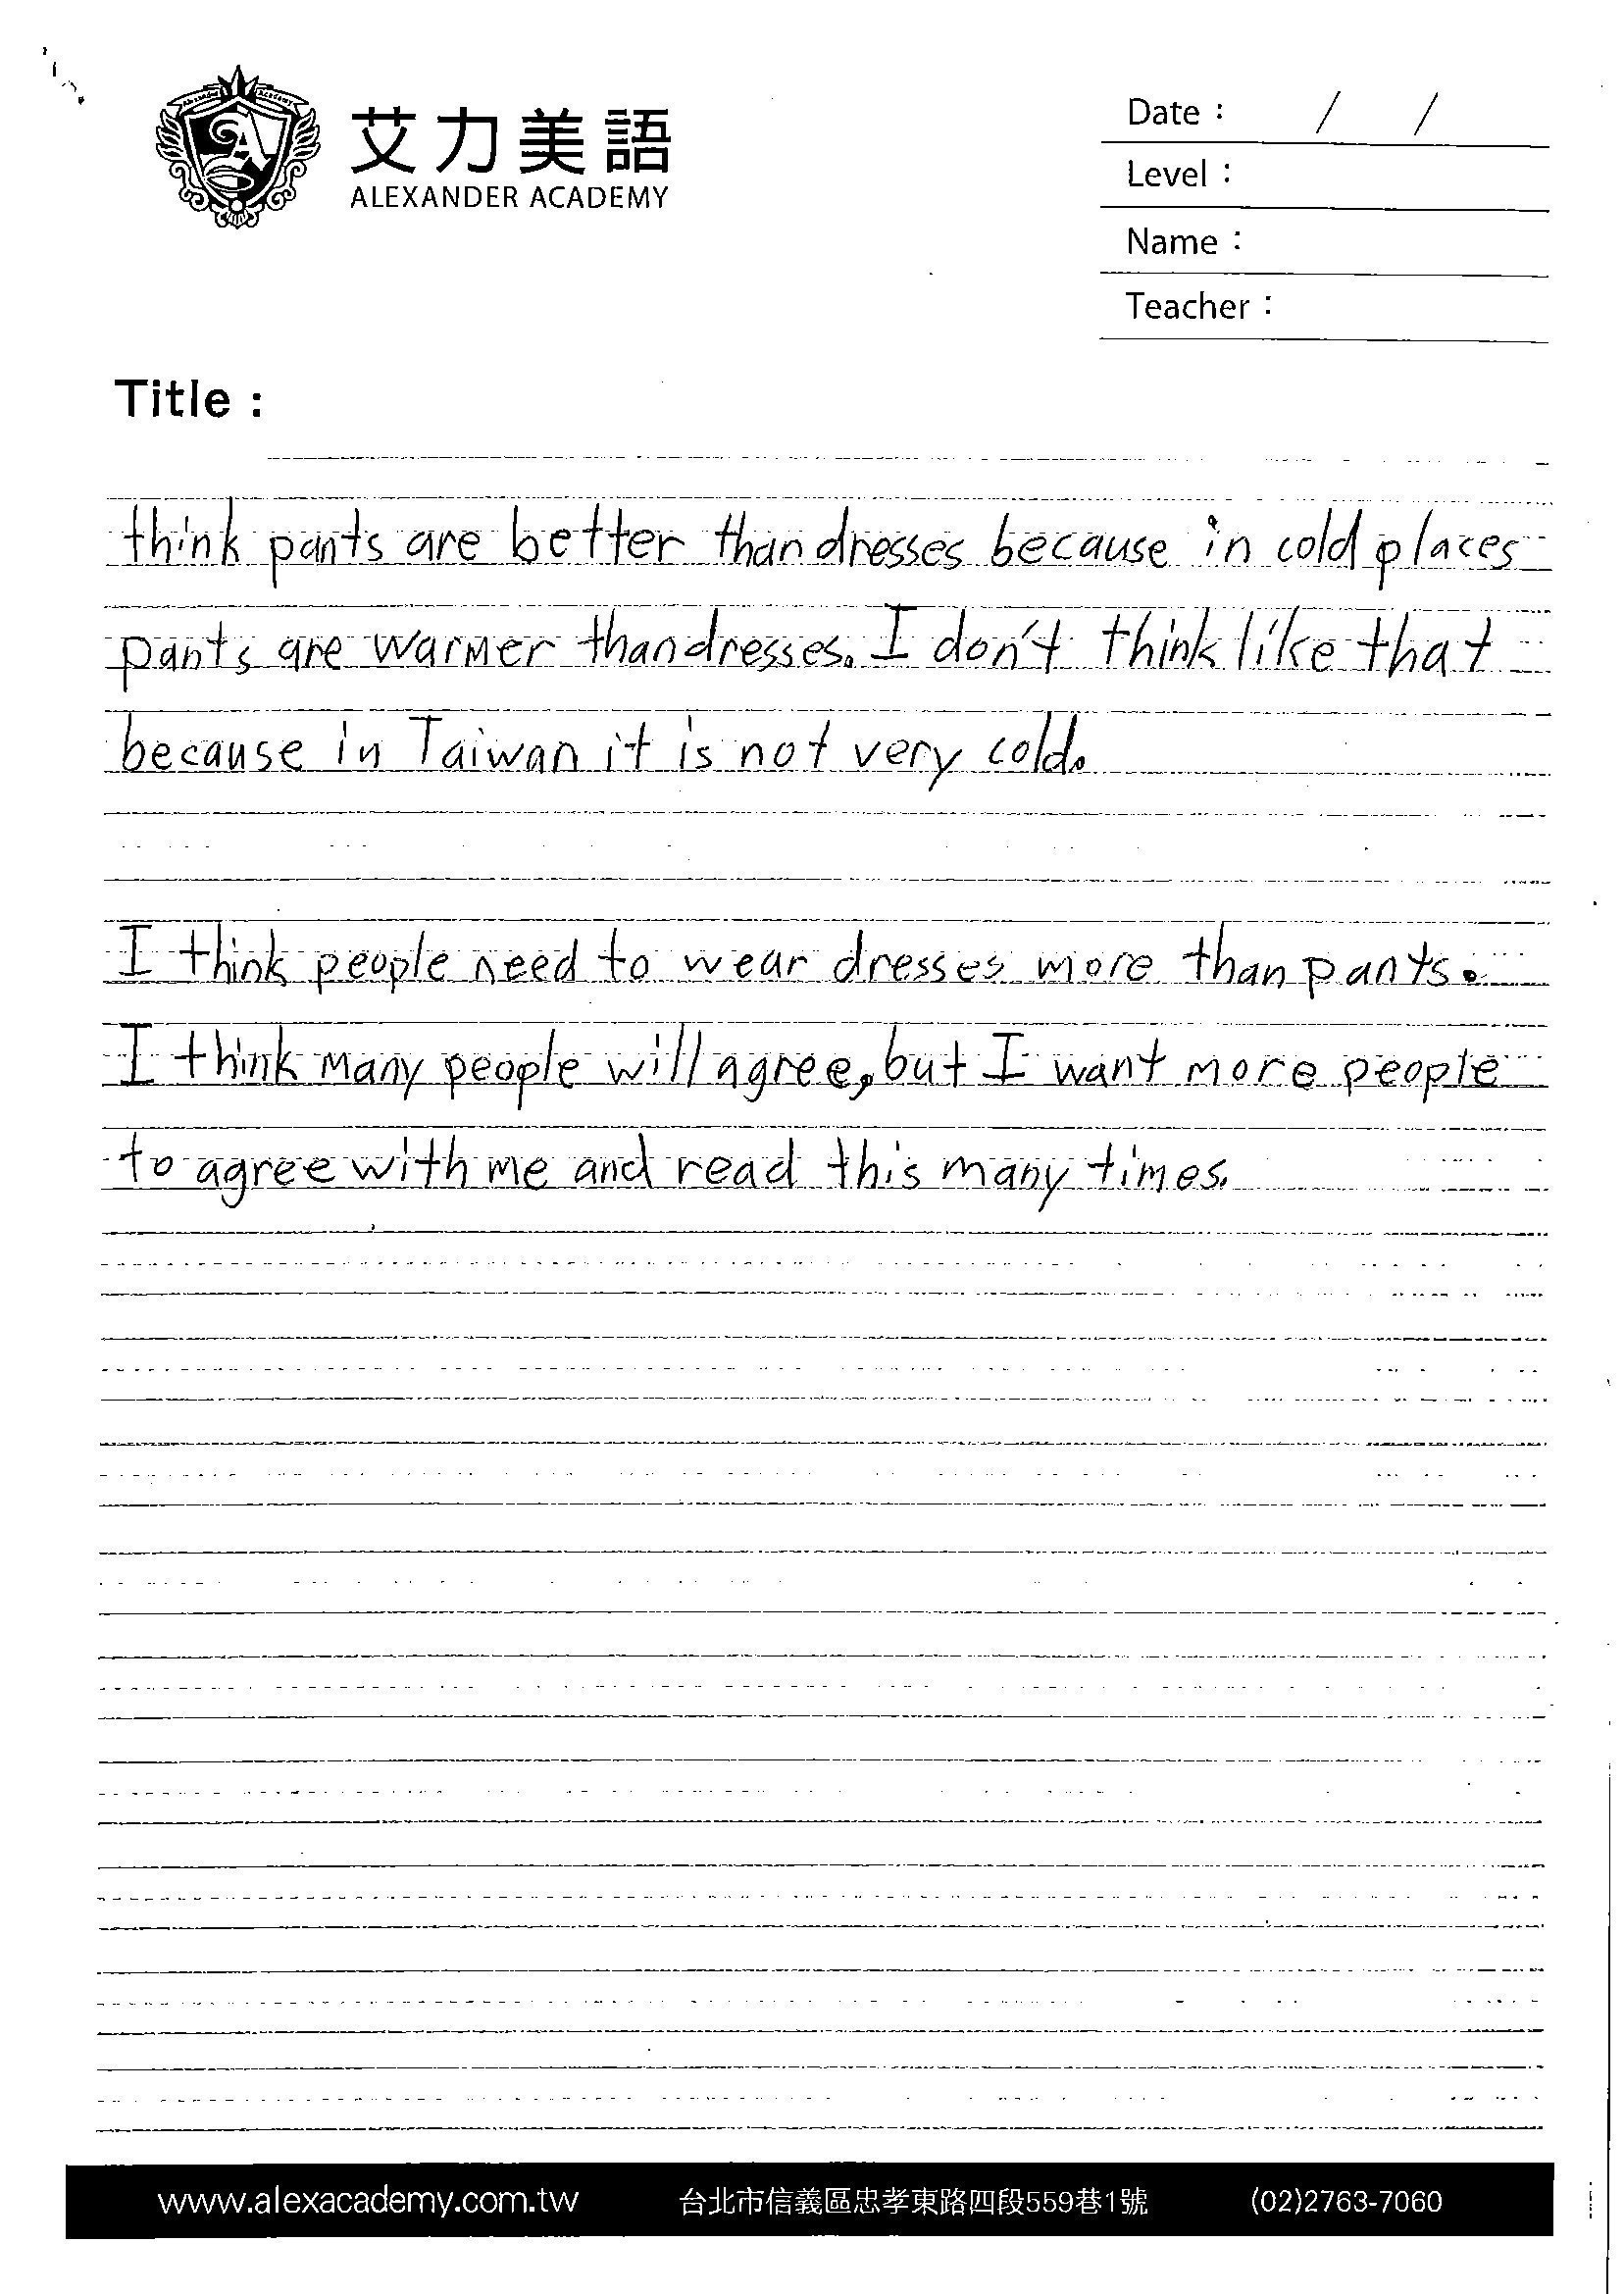 艾力美語
ALEXANDER ACADEMY
Date : / /
Level :
Name :
Teacher :
Title :
think pants are better than dresses because in cold places
pants are warmer than dresses. I don't think like that
because in Taiwan it is not very cold.
I think people need to wear dresses more than pants.
I think many people will agree, but I want more people
to agree with me and read this many times.
www.alexacademy.com.tw 台北市信義區忠孝東路四段559巷1號 (02)2763-7060